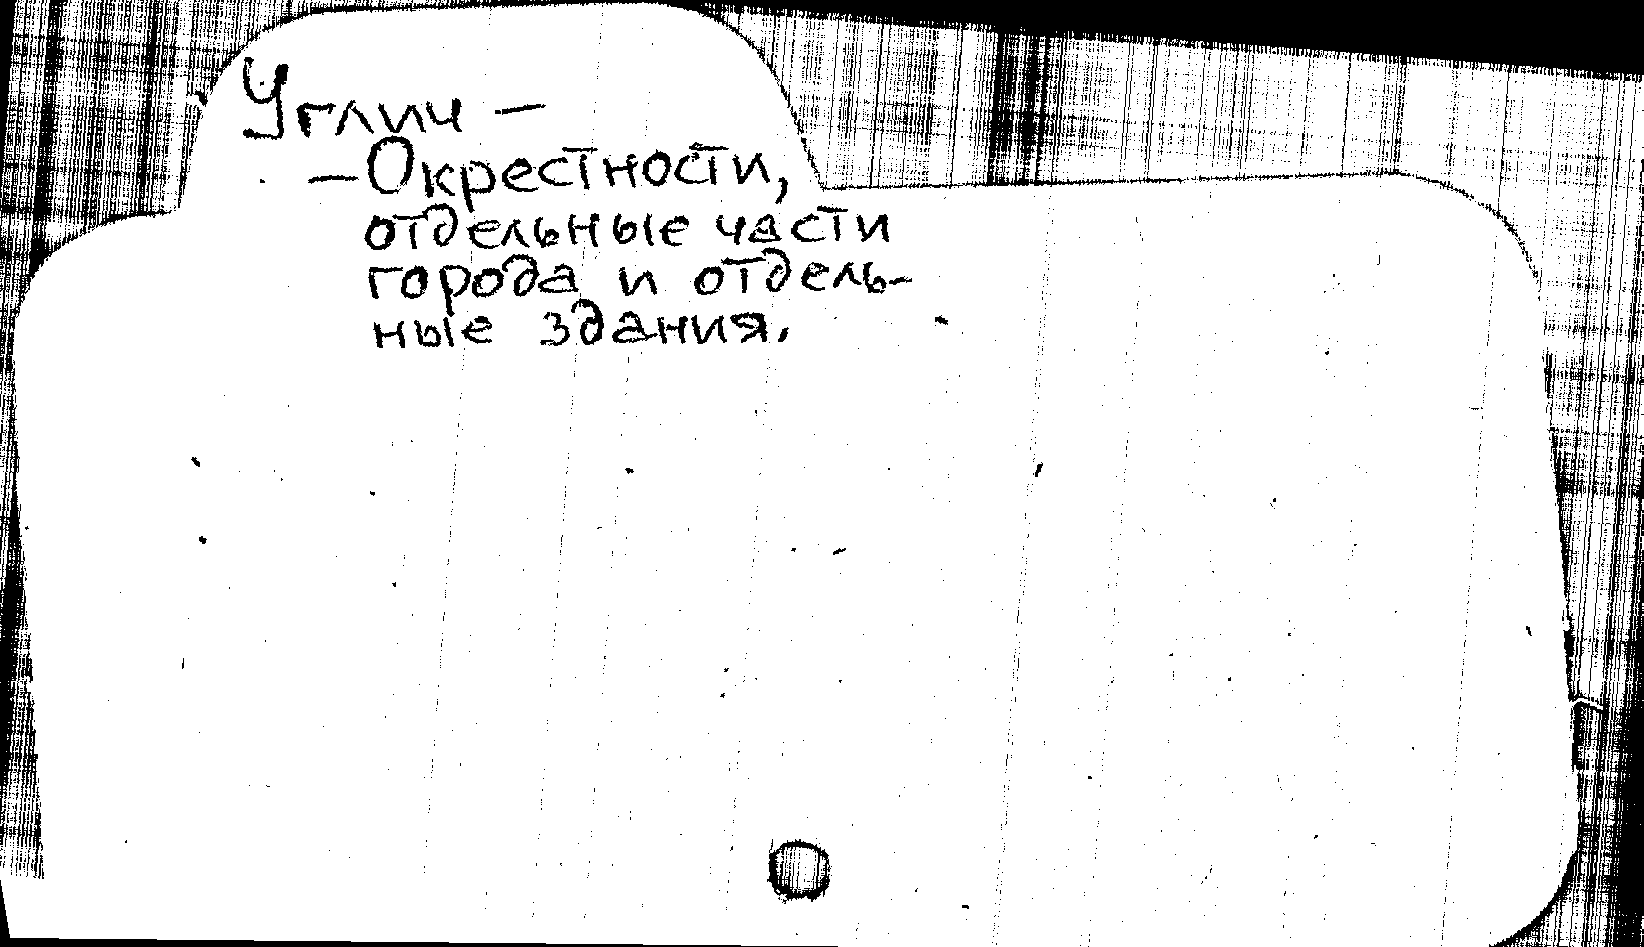 Углич —
— Окрестности,
отдельные части
города и отдель-
ные здания.